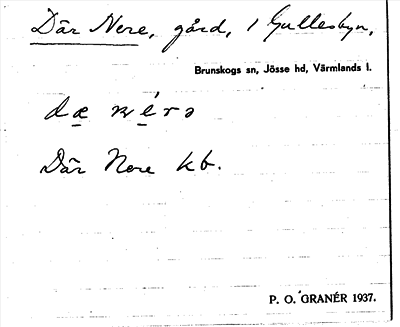 Där Nere, gård, i Gullesbyn,
Brunskogs sn, Jösse hd, Värmlands l.
dæ nérə
Där Nere kb.
P. O. GRANÉR 1937.